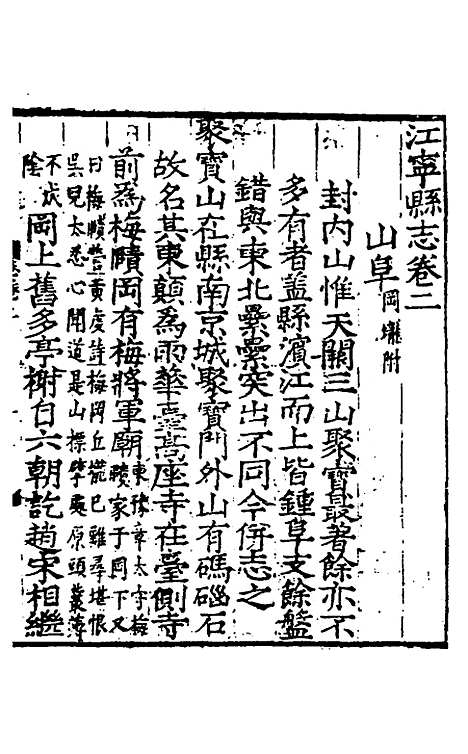 江寧縣志卷二
山阜岡壠附
封內山惟天闕三山聚寶最著餘亦不
多有者蓋縣濱江而上皆鍾阜支餘盤
錯與東北纍纍突出不同今併志之
聚寶山在縣南京城聚寶門外山有碼碯石
故名其東巔為雨華臺高座寺在臺側寺
前為梅賾岡有梅將軍廟東豫章太守梅
賾家于岡下又
曰梅賾營黃度詩梅岡丘壠已難尋堪恨
吳兒太悉心聞道是山標學處原頭叢薄
不成
陰岡上舊多亭榭自六朝訖趙宋相繼